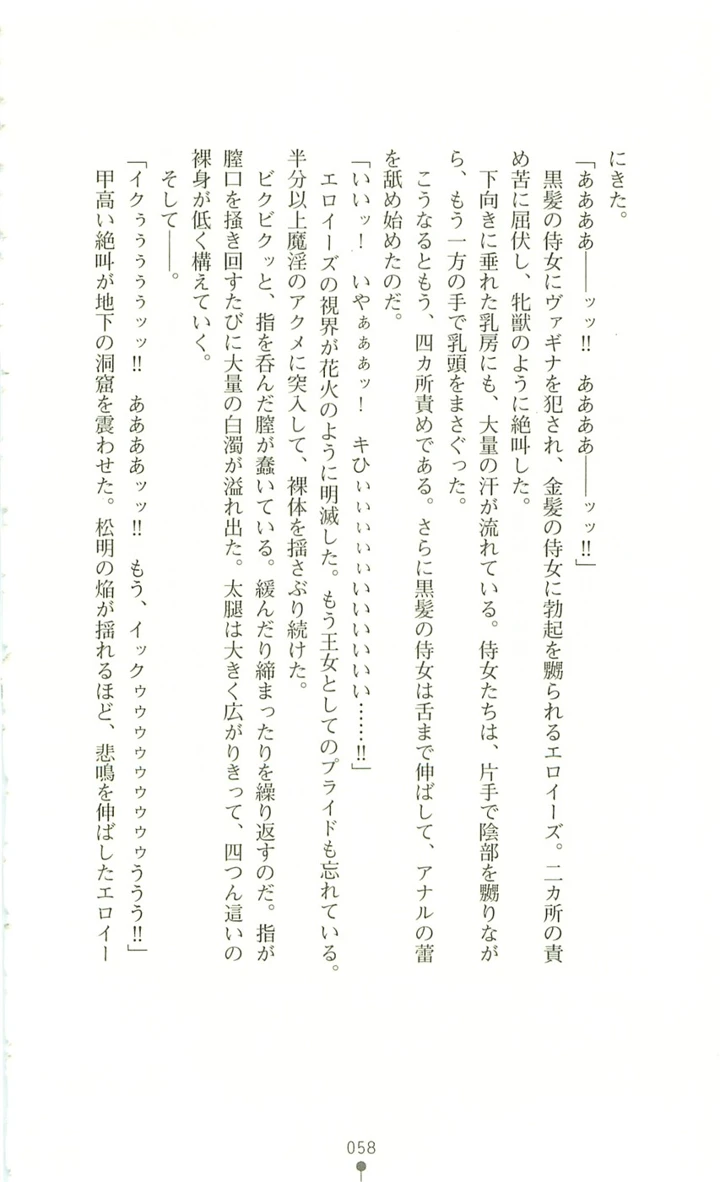 にきた。
「ああああ――ッッ‼　ああああ――ッッ‼」
黒髪の侍女にヴァギナを犯され、金髪の侍女に勃起を嬲られるエロイーズ。二カ所の責
め苦に屈伏し、牝獣のように絶叫した。
下向きに垂れた乳房にも、大量の汗が流れている。侍女たちは、片手で陰部を嬲りなが
ら、もう一方の手で乳頭をまさぐった。
こうなるともう、四カ所責めである。さらに黒髪の侍女は舌まで伸ばして、アナルの蕾
を舐め始めたのだ。
「いいッ！　いやぁぁぁッ！　キひぃぃぃぃぃいいいいいい……‼」
エロイーズの視界が花火のように明滅した。もう王女としてのプライドも忘れている。
半分以上魔淫のアクメに突入して、裸体を揺さぶり続けた。
ビクビクッと、指を呑んだ膣が蠢いている。緩んだり締まったりを繰り返すのだ。指が
膣口を掻き回すたびに大量の白濁が溢れ出た。太腿は大きく広がりきって、四つん這いの
裸身が低く構えていく。
そして――。
「イクぅぅぅぅぅッッ‼　ああああッッ‼　もう、イックゥゥゥゥゥゥゥゥううう‼」
甲高い絶叫が地下の洞窟を震わせた。松明の焔が揺れるほど、悲鳴を伸ばしたエロイー
058